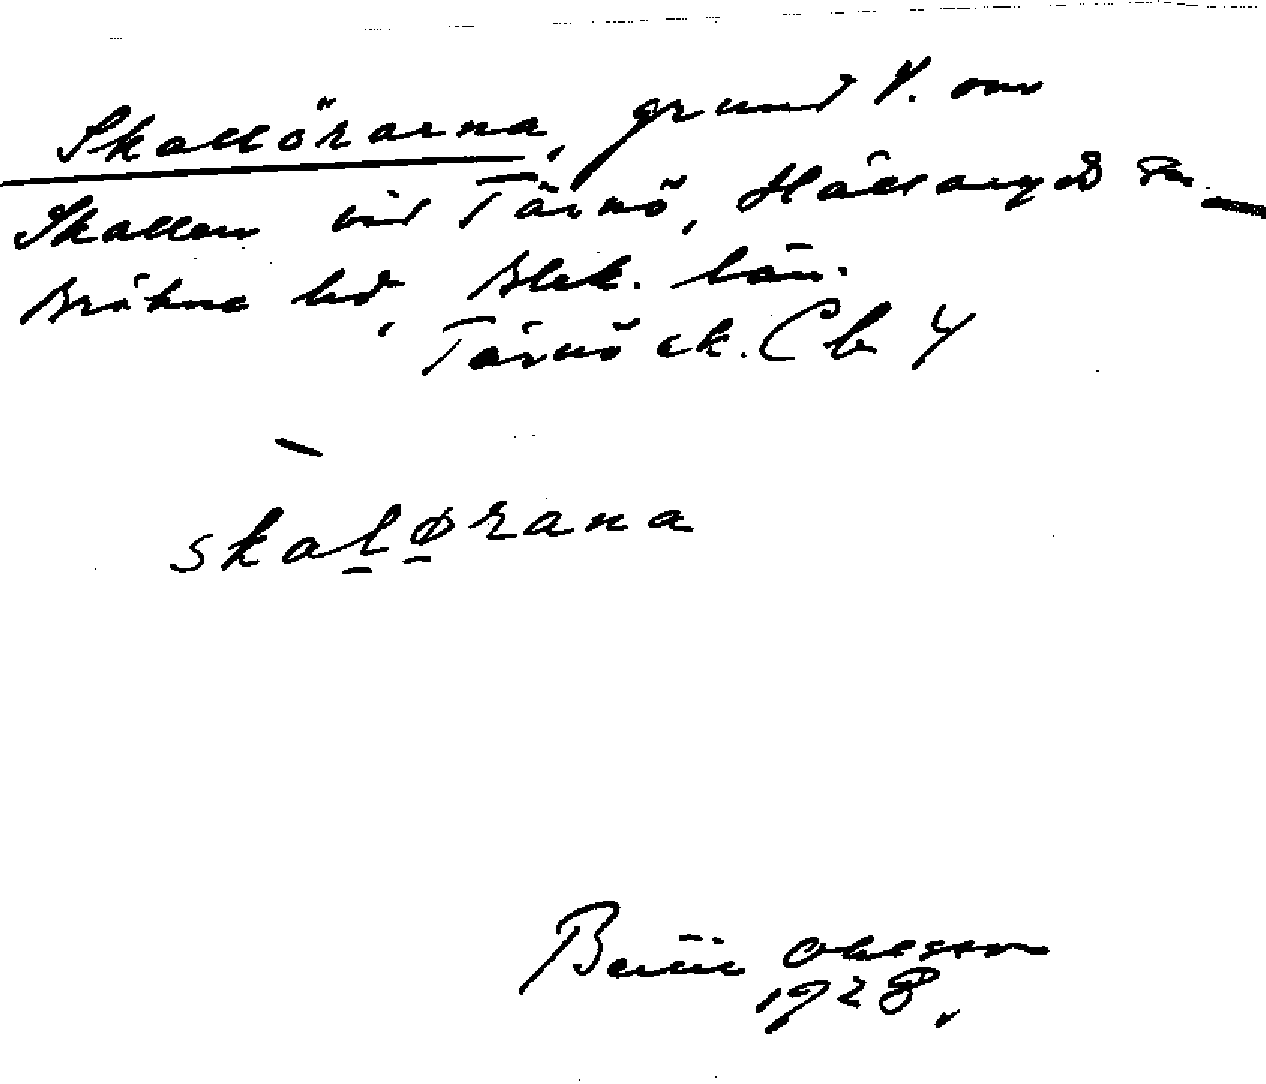 Skallörarna, grund V. om
Skallen vid Tärnö, Hällaryd sn
Bräkne hd, Blek. län.
Tärnö ek. Cb 4
skalørana
Bertil Ohlsson
1928.